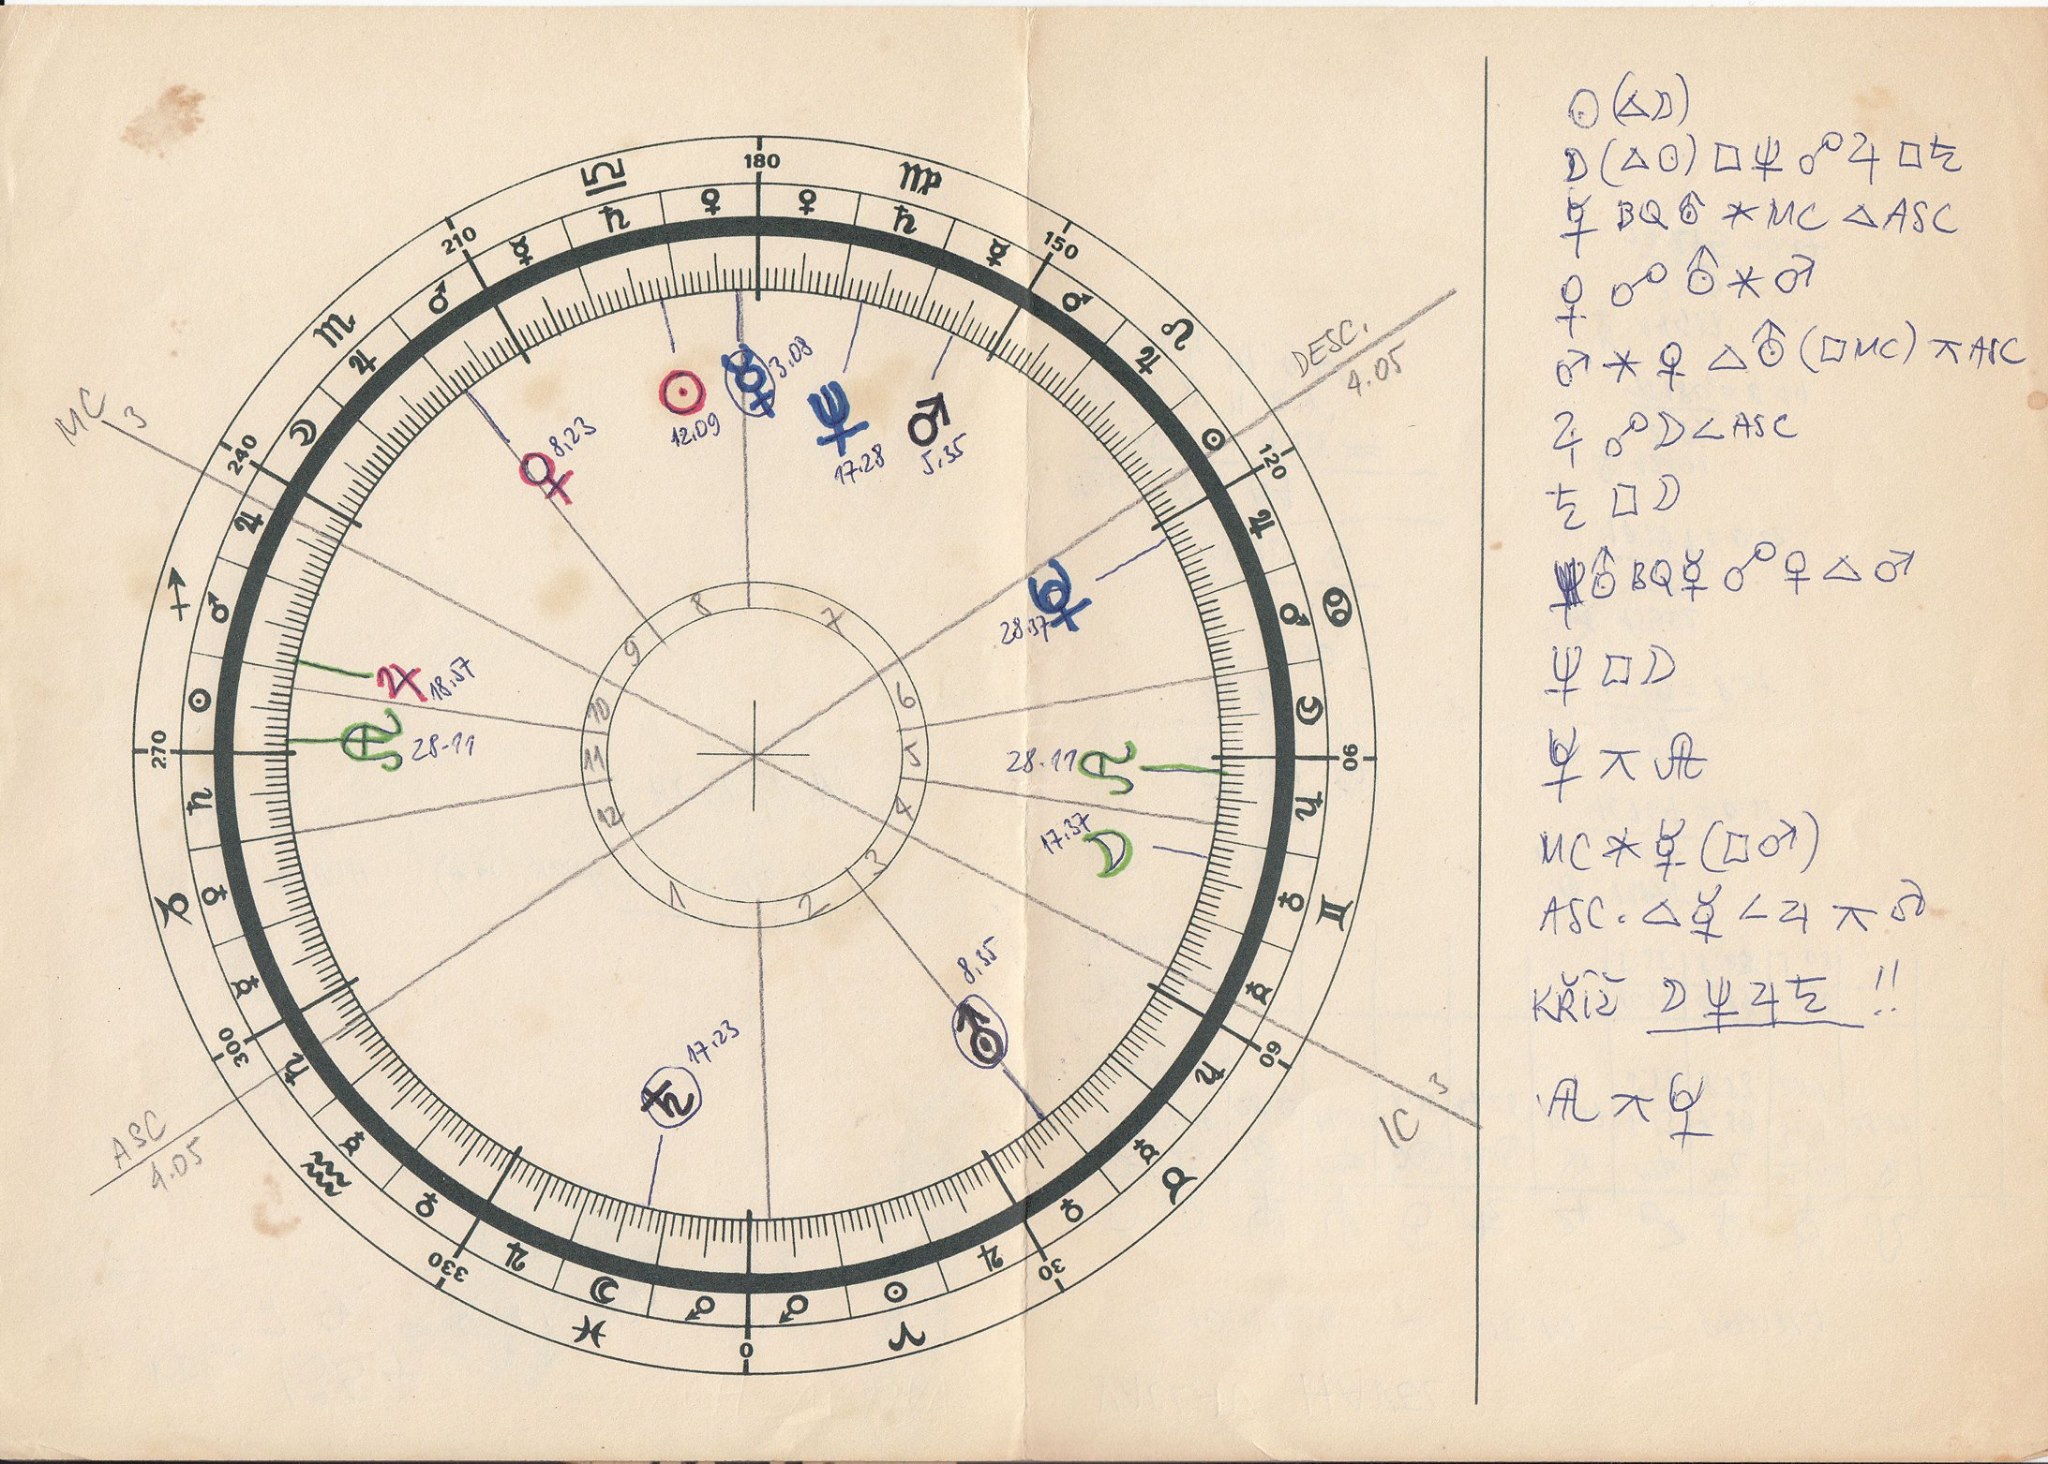 180
♎
♍
♀
♀
♄
♄
☿
☿
210
150
♂
♂
♏
♌
♃
♃
☽
☉
240
120
♃
♃
♐
♋
♂
♂
☉
☽
270
90
♄
♄
♀
♀
♑
♊
☿
☿
300
60
♄
♃
☿
☿
♒
♉
♀
♀
330
30
♃
♃
☽
☉
♂
♂
♓
♈
0
MC 3
DESC.
4.05
ASC
4.05
IC 3
♀ 8.23
☉ 12.09
☿ 3.08
♆ 17.28
♂ 5.35
♇ 28.37
♃ 18.57
28.11
28.11
☽ 17.37
♅ 8.35
♄ 17.23
1
2
3
4
5
6
7
8
9
10
11
12
☉ (△☽)
☽ (△☉) □♆ ☍♃ □♄
☿ BQ♅ ⚹MC △ASC
♀ ☍♅ ⚹♂
♂ ⚹♀ △♅ (□MC) ⚻ASC
♃ ☍☽ ∠ASC
♄ □☽
♅ BQ☿ ☍♀ △♂
♆ □☽
♇ ⚻ ☊
MC ⚹☿ (□♂)
ASC. △☿ ∠♃ ⚻♂
KŘÍŽ ☽♆♃♄ !!
☊ ⚻ ♇